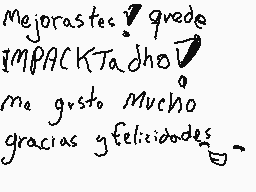 Mejorastes! quede
IMPACKTadho!
me gusto Mucho
gracias y felizidades